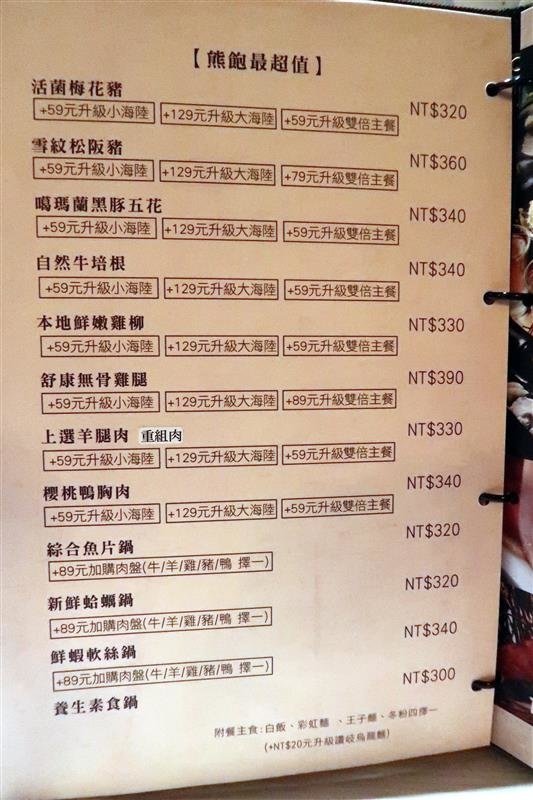 【熊飽最超值】
活菌梅花豬 NT$320
+59元升級小海陸 +129元升級大海陸 +59元升級雙倍主餐
雪紋松阪豬 NT$360
+59元升級小海陸 +129元升級大海陸 +79元升級雙倍主餐
噶瑪蘭黑豚五花 NT$340
+59元升級小海陸 +129元升級大海陸 +59元升級雙倍主餐
自然牛培根 NT$340
+59元升級小海陸 +129元升級大海陸 +59元升級雙倍主餐
本地鮮嫩雞柳 NT$330
+59元升級小海陸 +129元升級大海陸 +59元升級雙倍主餐
舒康無骨雞腿 NT$390
+59元升級小海陸 +129元升級大海陸 +89元升級雙倍主餐
上選羊腿肉 重組肉 NT$330
+59元升級小海陸 +129元升級大海陸 +59元升級雙倍主餐
櫻桃鴨胸肉 NT$340
+59元升級小海陸 +129元升級大海陸 +59元升級雙倍主餐
綜合魚片鍋 NT$320
+89元加購肉盤(牛/羊/雞/豬/鴨 擇一)
新鮮蛤蠣鍋 NT$320
+89元加購肉盤(牛/羊/雞/豬/鴨 擇一)
鮮蝦軟絲鍋 NT$340
+89元加購肉盤(牛/羊/雞/豬/鴨 擇一)
養生素食鍋 NT$300
附餐主食:白飯、彩虹麵、王子麵、冬粉四擇一
(+NT$20元升級讚岐烏龍麵)